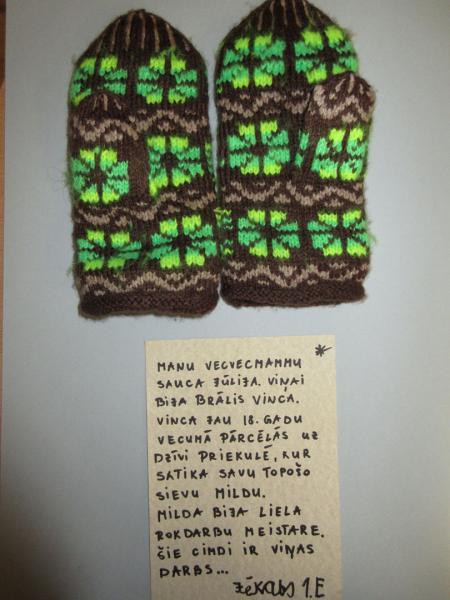 MANU VECVECMAMMU
SAUCA JŪLIJA. VIŅAI
BIJA BRĀLIS VINCA.
VINCA JAU 18. GADU
VECUMĀ PĀRCĒLĀS UZ
DZĪVI PRIEKULĒ, KUR
SATIKA SAVU TOPOŠO
SIEVU MILDU.
MILDA BIJA LIELA
ROKDARBU MEISTARE.
ŠIE CIMDI IR VIŅAS
DARBS...
JĒKABS 1.E